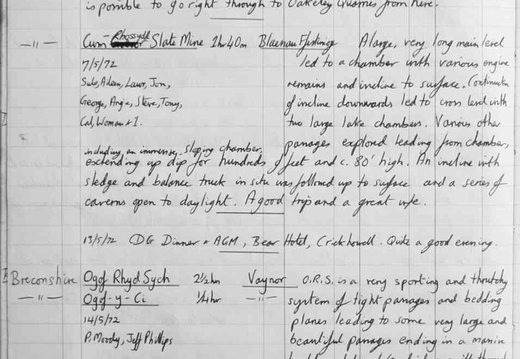 is possible to go right through to Oakeley Quarries from here.
-"- Cwm Rhosydd Slate Mine 2h40m Blaenau Ffestiniog A large, very long main level
7/5/72 led to a chamber with various engine
remains and incline to surface. Continuation
George, Angie, Steve, Tony, of incline downwards led to cross level with
Cal, Woman & I. two large lake chambers. Various other
passages explored leading from chamber,
including, an immense, sloping chamber,
extending up dip for hundreds of feet and c. 80' high. An incline with
sledge and balance truck in situ was followed up to surface and a series of
caverns open to daylight. A good trip and a great
13/5/72 CDG Dinner & AGM, Bear Hotel, Crickhowell. Quite a good evening.
Breconshire Ogof Rhyd Sych 2½hr Vaynor O.R.S. is a very sporting and thrutchy
-"- Ogof-y-Ci 1/4hr -"- system of tight passages and bedding
14/5/72 planes leading to some very large and
P. Moody, Jeff Phillips beautiful passages ending in a massive